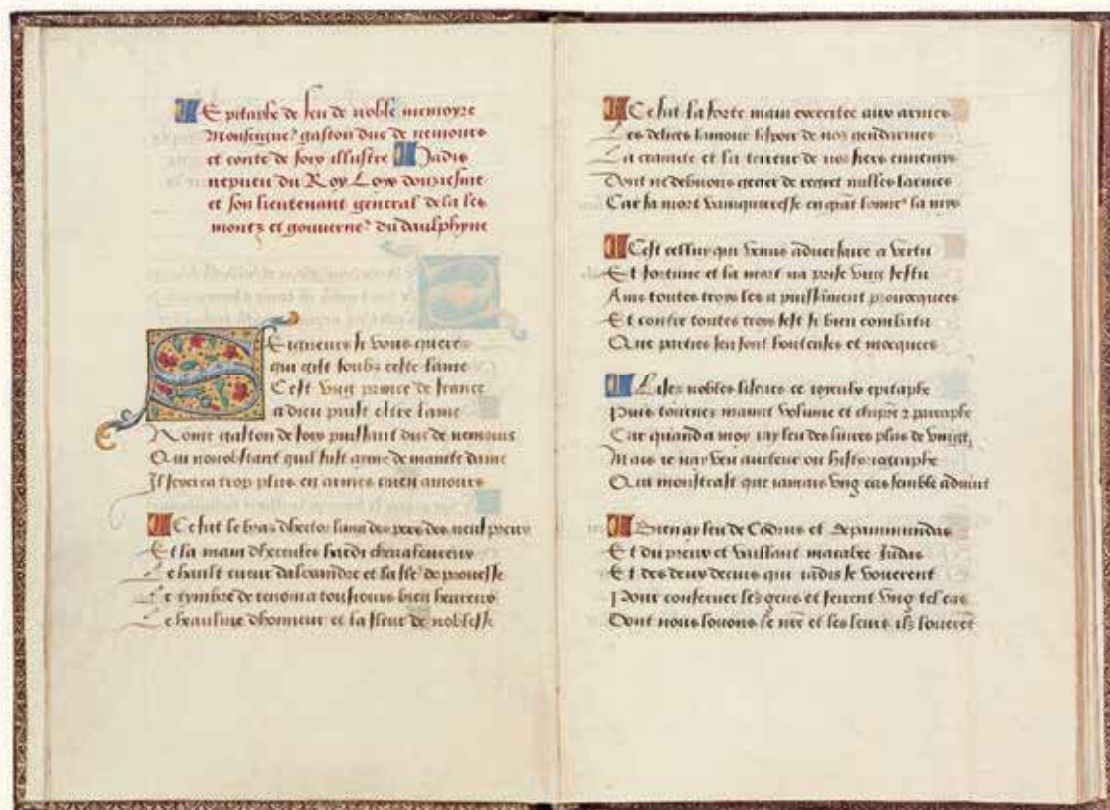 L Epitaphe de feu de noble memoyre
Monseigne² gaston duc de nemours
et conte de foix illustre Jadis
nepueu du Roy Loys douziesme
et son lieutenant general de la les
montz et gouverne² du daulphyne
Seigneurs se vous queres
qui gist soubz ceste lame
Cest vng prince de france
a dieu puist estre lame
Nome gaston de foix puissant duc de nemours
Qui nonobstant quil fust ame de mainte dame
Il sexerca trop plus en armes quen amours
Ce fut le bras dhector lung des pers des neuf preux
Et la main dhercules hardi cheualeureux
Le hault cueur dalexandre et la de prouesse
Le tymbre de renom a tousiours bien heureux
Le heaulme dhonneur et la fleur de noblesse
Ce fut la forte main exercitee aux armes
Les delices lamour lespoir de noz gendarmes
La craincte et la terreur de nos fiers ennemys
Dont ne debuons gecter de regret nulles larmes
Car la mort vainqueresse en quāt home² la mys
Cest cessuy qui venus aduersaire a vertu
Et fortune et la mort na prise vng festu
Ains toutes troys les a puissāment prouocquees
Et contre toutes troys sest si bien combatu
Que parties sen sont honteuses et mocquees
Lisez nobles liseurs ce epitaphe
Puis tournez maint volume et chapit² parraphe
Car quand a moy iay leu des liures plus de vingt
Mais ie nay veu aucteur ou historiagraphe
Qui monstrast que iamais vng cas semble aduint
Bien ay leu de Codrus et depaminundas
Et du preux et vaillant macabe Judas
Et des deux decius qui iadis se vouerent
Pour conseruer les gens et feirent vng tel cas
Dont nous louons le nr̄e et les leurs ilz louerēt